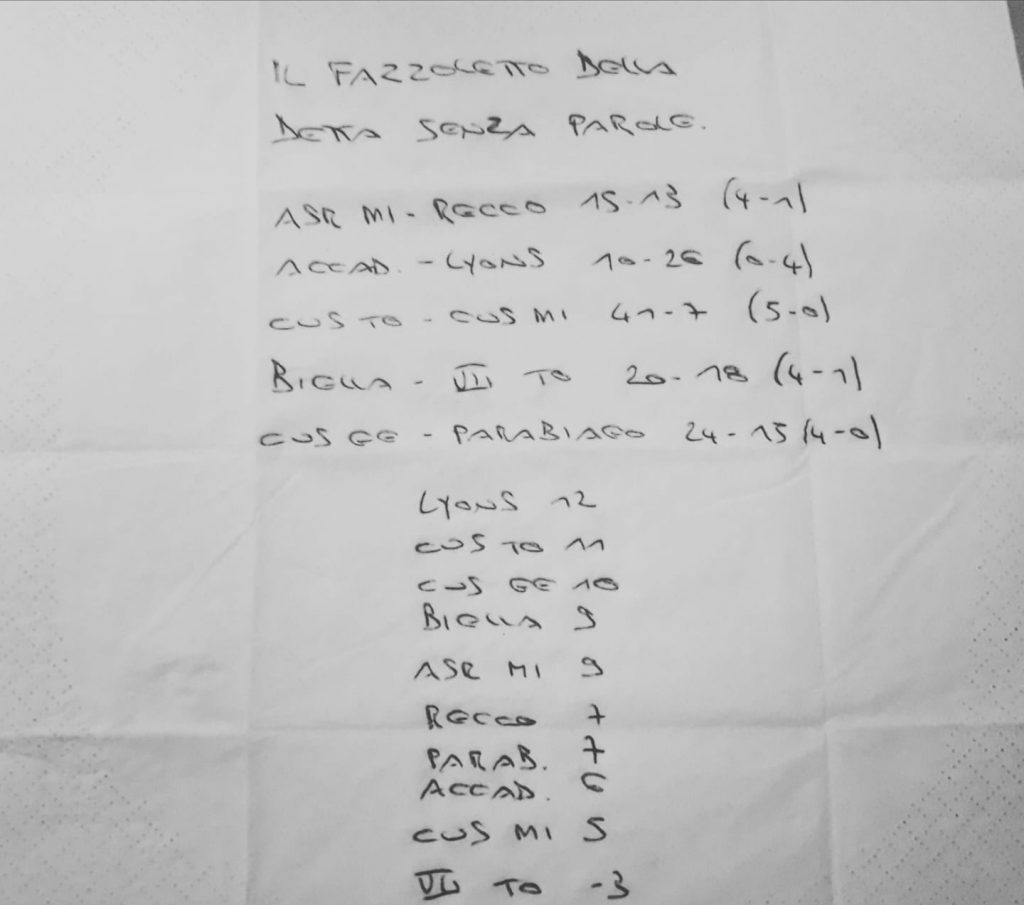 IL FAZZOLETTO DELLA
DETTA SENZA PAROLE.
ASR MI - RECCO 15-13 (4-1)
ACCAD. - LYONS 10-26 (0-4)
CUS TO - CUS MI 41-7 (5-0)
BIELLA - VII TO 20-18 (4-1)
CUS GE - PARABIAGO 24-15 (4-0)
LYONS 12
CUS TO 11
CUS GE 10
BIELLA 9
ASR MI 9
RECCO 7
PARAB. 7
ACCAD. 6
CUS MI 5
VII TO -3